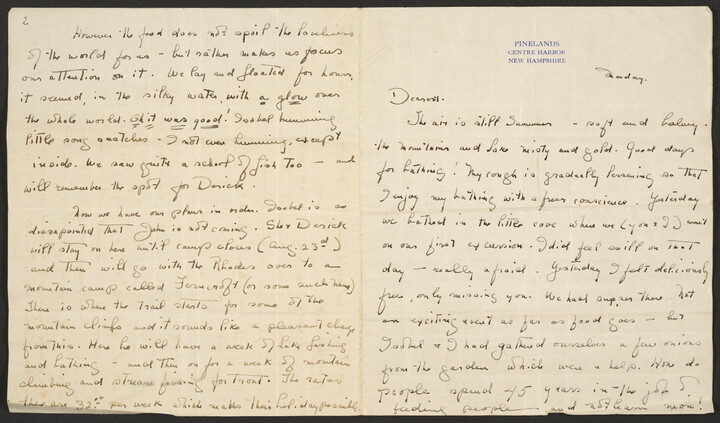 PINELANDS
CENTRE HARBOR
NEW HAMPSHIRE
Monday.
Dearest-
The air is still Summer - soft and balmy.
the mountains and lake misty and gold. Good days
for bathing! My cough is gradually lessening so that
I enjoy my bathing with a freer conscience. Yesterday
we bathed in the little cove where we (you & I) went
on our first excursion. I did feel so ill on that
day - really afraid. Yesterday I felt deliciously
free, only missing you. We had supper there. Not
an exciting event as far as food goes - but
Isobel & I had gathered ourselves a few onions
from the garden which were a help. How do
people spend 45 years in the job of
feeding people and not learn more!
2
However the food does not spoil the loveliness
of the world for us - but rather makes us focus
our attention on it. We lay and floated for hours,
it seemed, in the silky water, with a glow over
the whole world. Oh it was good! Isobel humming
little song snatches. I not even humming, except
inside. We saw quite a school of fish too - and
will remember the spot for Derick.
Now we have our plans in order. Isobel is so
disappointed that John is not coming. She & Derick
will stay on here until camp closes (Aug. 23rd)
and then will go with the Rhodes over to a
mountain camp called Ferncroft (or some such name)
There is where the trail starts for some of the
mountain climbs and it sounds like a pleasant change
from this. Here he will have a week of lake fishing
and bathing - and then on for a week of mountain
climbing and stream fishing for trout. The rates
there are 32.00 per week which makes their holiday possible.